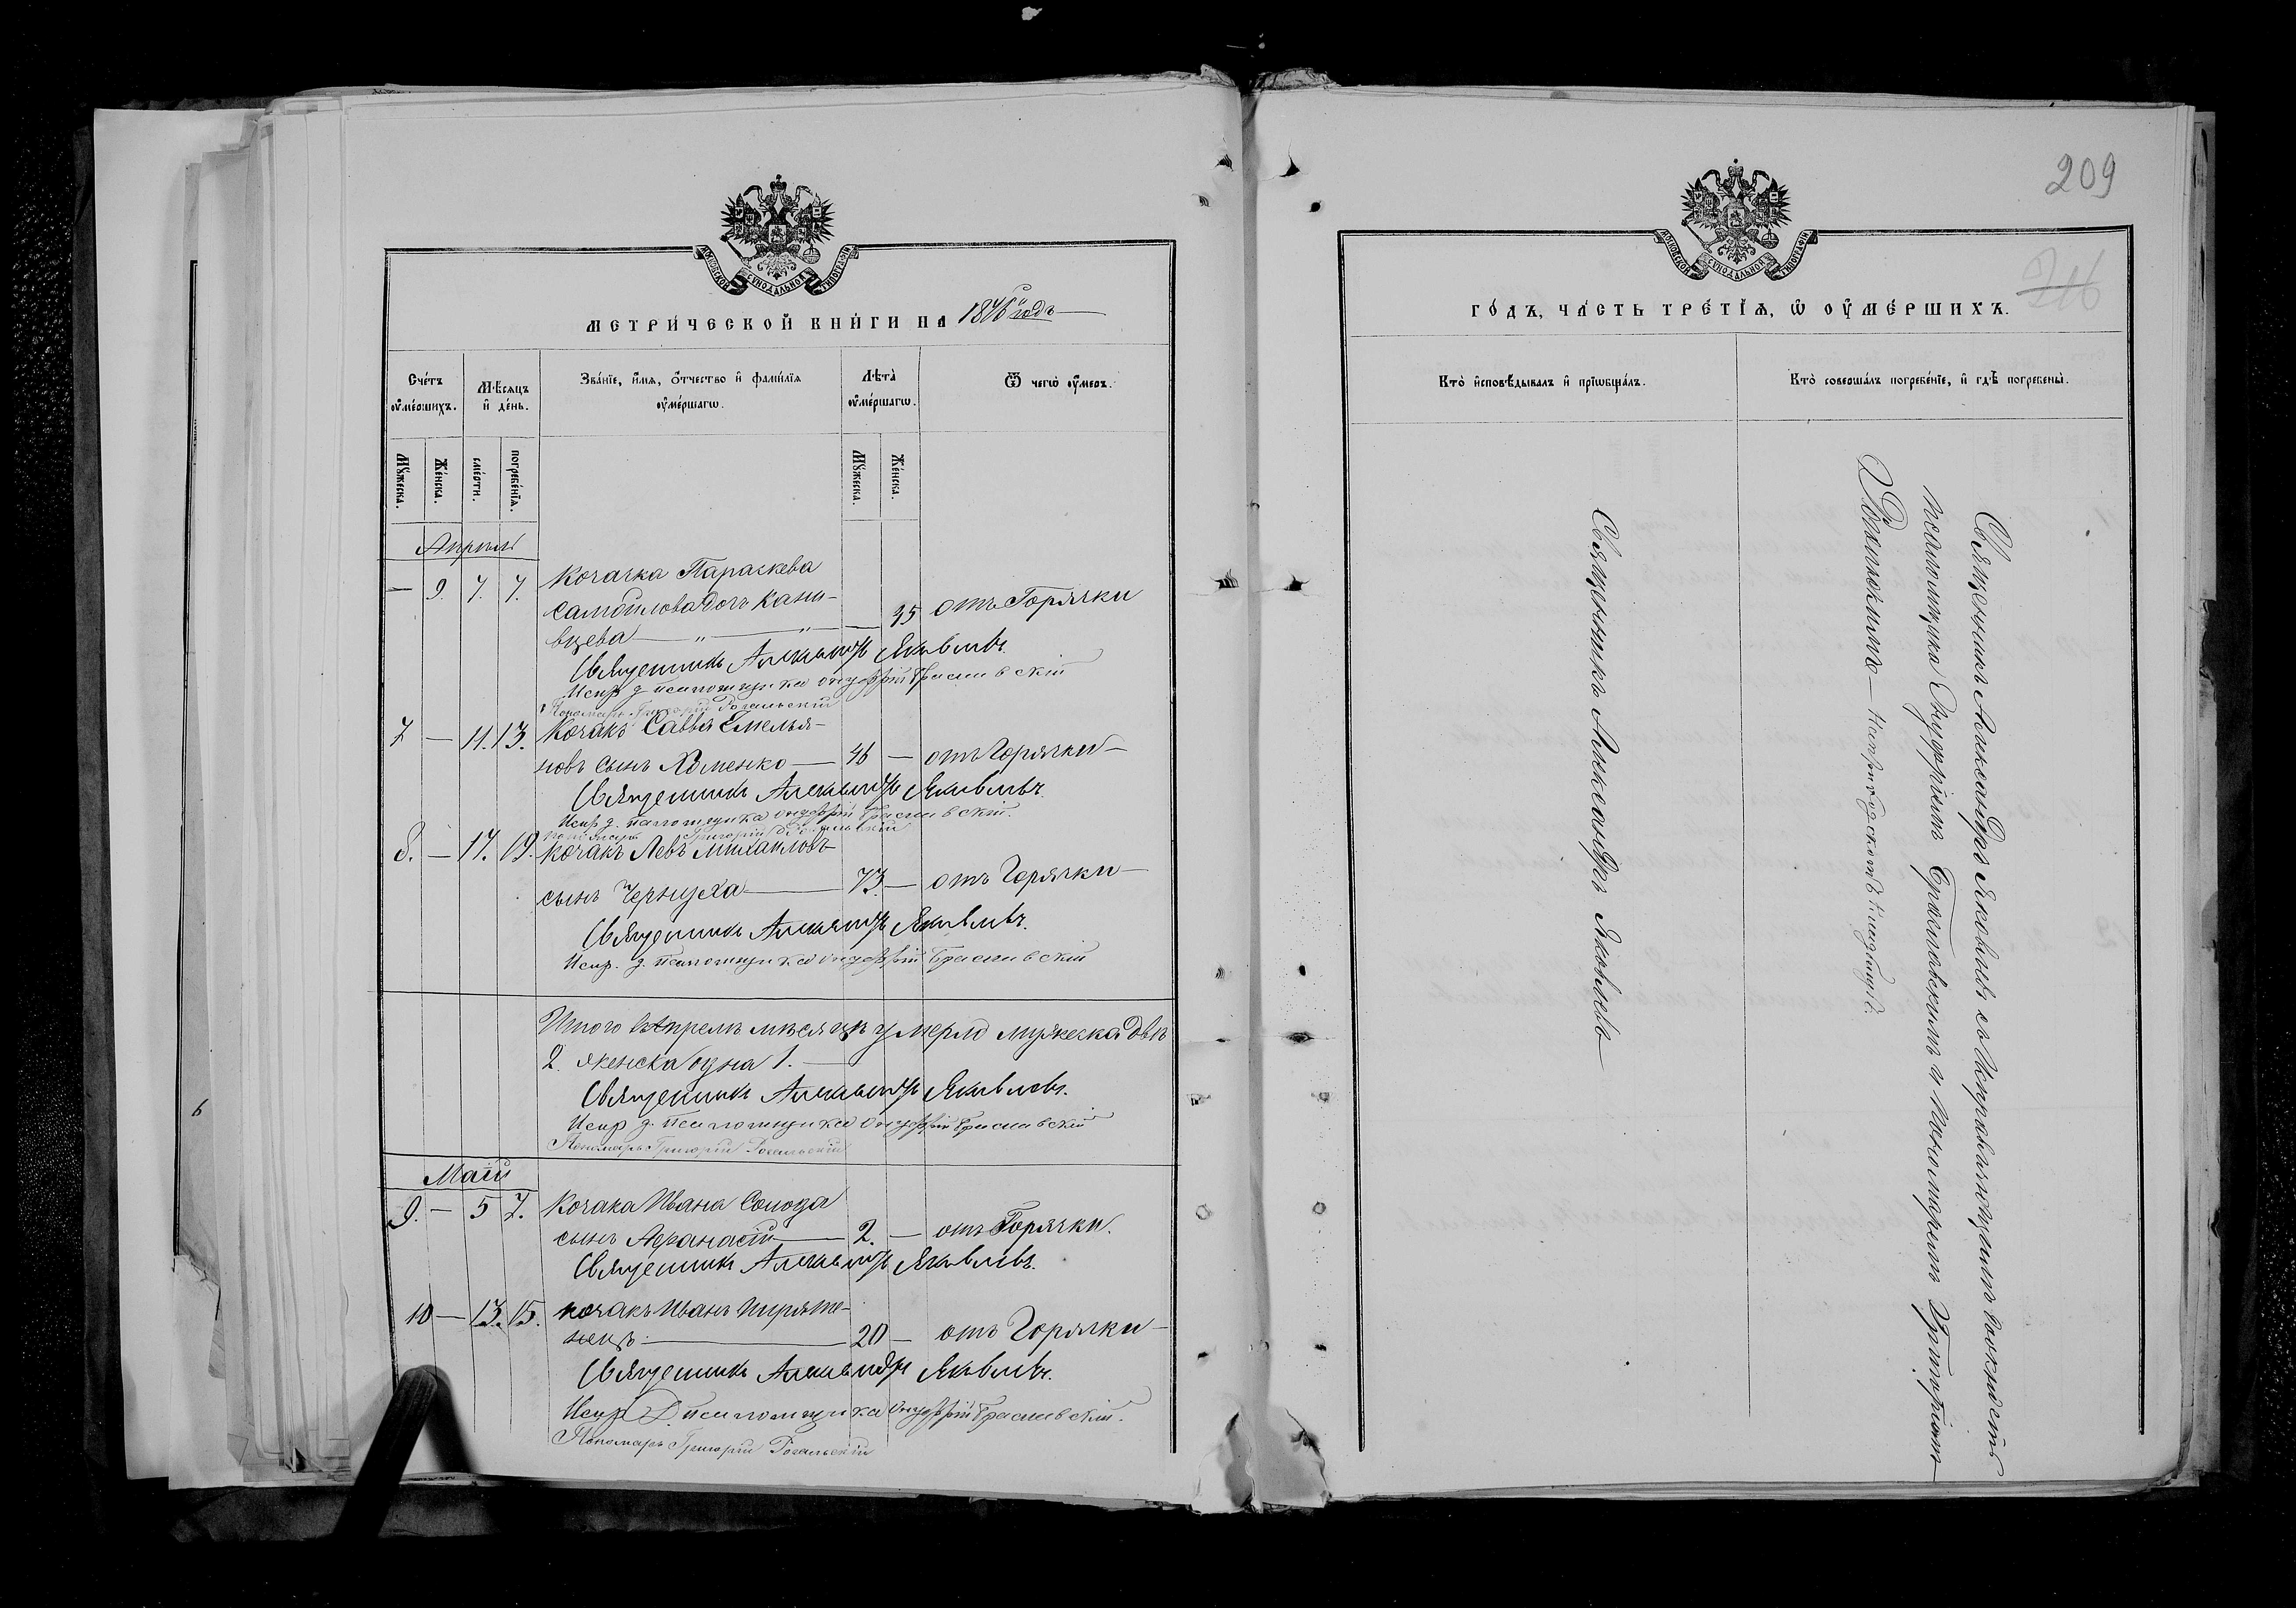 МОСКОВСКОЙ СУНОДАЛЬНОЙ ТИПОГРАФІИ
МЕТРИ́ЧЕСКОЙ КНИ́ГИ НА 1876 годъ
Сче́тъ ᲂу҆ме́ршихъ.
Мѣ́сяцъ и҆ де́нь.
Зва́нїе, и҆́мя, ѻ҆́тчество и҆ фами́лїя ᲂу҆ме́ршагѡ.
Лѣта̀ ᲂу҆ме́ршагѡ.
Ѿ чегѡ̀ ᲂу҆́меръ.
Мꙋ́жеска.
Же́нска.
сме́рти.
погребе́нїѧ.
Мꙋ́жеска.
Же́нска.
Апрель
— 9. 7. 7. Козачка Параскева
Самойлова дочь Кани-
вцева — 35 отъ Горячки
Священникъ Александръ Яковлевъ.
Испр. д. псаломщика Онуфрій Браславскій
Пономарь Григорій Рогальскій
7 — 11. 13. Козакъ Савва Емелья-
новъ сынъ Хоменко — 46 — отъ Горячки —
Священникъ Александръ Яковлевъ.
Испр. д. псаломщика Онуфрій Браславскій.
Пономарь Григорій Рогальскій
8. — 17. 19. Козакъ Левъ Михайловъ
сынъ Чернуха — 73 — отъ Горячки —
Священникъ Александръ Яковлевъ.
Испр. д. псаломщика Онуфрій Браславскій
Итого въ Апрелѣ мѣсяцѣ умерло мужеска двѣ
2. женска одна 1. —
Священникъ Александръ Яковлевъ.
Испр. д. псаломщика Онуфрій Браславскій
Пономарь Григорій Рогальскій
Маій
9. — 5 7. Козака Ивана Солода
сынъ Афанасій — 2. — отъ Горячки.
Священникъ Александръ Яковлевъ.
10 — 13. 15. козакъ Иванъ Пиряте-
нецъ — 20 — отъ Горячки —
Священникъ Александръ Яковлевъ.
Испр. д. псаломщика Онуфрій Браславскій.
Пономарь Григорій Рогальскій
209
МОСКОВСКОЙ СУНОДАЛЬНОЙ ТИПОГРАФІИ
ГО́ДЪ, ЧА́СТЬ ТРЕ́ТЇѦ, Ѡ҆ ОУ҆МЕ́РШИХЪ.
Кто̀ и҆сповѣ́дывалъ и҆ прїѡбща́лъ.
Кто̀ соверша́лъ погребе́нїе, и҆ гдѣ̀ погребены̀.
Священникъ Александръ Яковлевъ
Священникъ Александръ Яковлевъ съ Исправляющимъ должность
псаломщика Онуфріемъ Браславскимъ и Пономаремъ Григоріемъ
Рогальскимъ — на приходскомъ кладбищѣ.